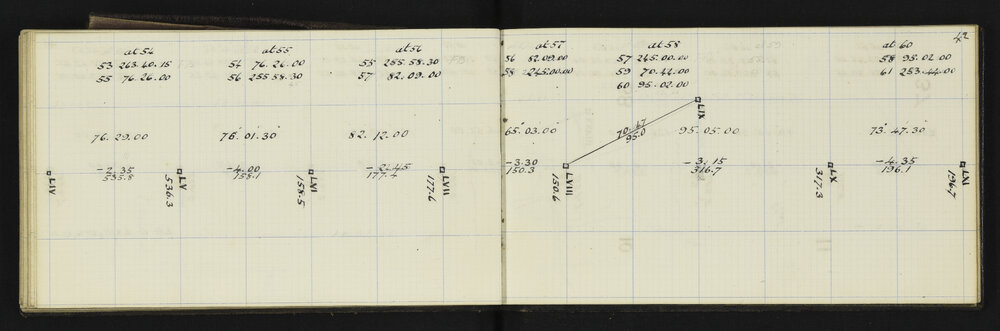 42
at 54
53 263.40.15
55 76.26.00
at 55
54 76.26.00
56 255 58.30
at 56
55 255 58.30
57 82.09.00
at 57
56 82.09.00
58 245.00.00
at 58
57 245.00.00
59 70.44.00
60 95.02.00
at 60
58 95.02.00
61 253.44.00
76.29.00
76.01.30
82.12.00
65.03.00
70.47
95.0
95.05.00
73.47.30
-2.35
535.8
-4.00
158.1
-2.45
177.4
-3.30
150.3
-3.15
316.7
-4.35
196.1
LIV
LV
536.3
LVI
158.5
LVII
177.6
LVIII
150.6
LIX
LX
317.3
LXI
196.7